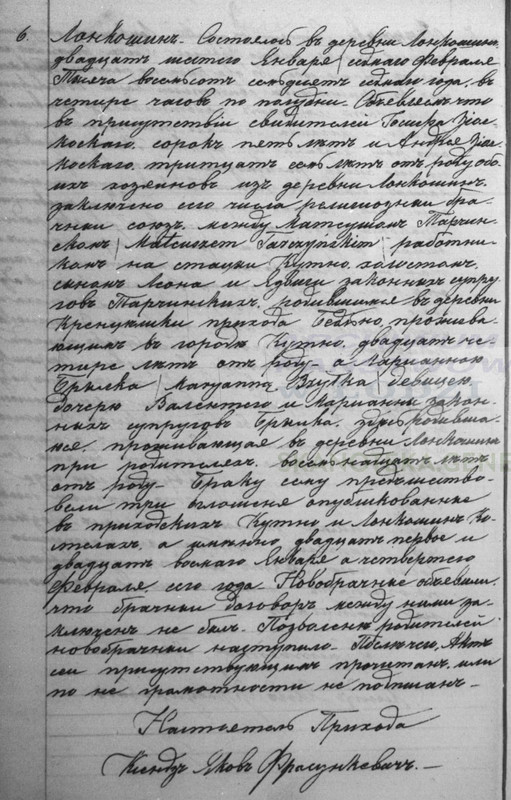 6. Лонкошинъ. Состоялось въ деревни Лонкошинъ
двадцать шестого Января /седмаго Февраля
тысяча восемьсотъ семьдесятъ седмаго года, въ
четыре часовъ по полудни. Объявляемъ что
въ присутствіи свидѣтелей
сорокъ пять лѣтъ и Андрея
тритцать семь лѣтъ отъ роду обо-
ихъ хозяиновъ изъ деревни Лонкошинъ.
заключено сего числа религіозный бра-
чный союзъ, между Матеушомъ Тарчин-
скомъ /Mateuszem Tarczyńskim/ работни-
комъ на стацыи Кутно, холостомъ,
сыномъ Леона и Ядвиги законныхъ супру-
говъ Тарчинскихъ, родившимся въ деревни
прихода Бедльно, прожива-
ющимъ въ городѣ Кутно, двадцать че-
тыре лѣтъ отъ роду а Маріанною
/Maryanną девицею,
дочерю Валентего и Маріанны закон-
ныхъ супруговъ здѣсь родивша-
яся, проживающая въ деревни Лонкошинъ
при родителехъ, восемьнадцать лѣтъ
отъ роду. Браку сему предшество-
вали три оглошеня опубликованные
въ приходскихъ Кутно, и Лонкошинъ Ко-
стелахъ, а именно, двадцать первое и
двадцать восмаго Января а четвертого
Февраля, сего года. Новобрачные объявили
что брачный договоръ между ними за-
ключенъ не былъ. Позволеніе родителей
новобрачный наступило. Актъ
сей присутствующимъ прочитанъ, ими
по не грамотности не подписанъ.
Настоятель Прихода
Ксендзъ Яковъ Фрасункевичъ.